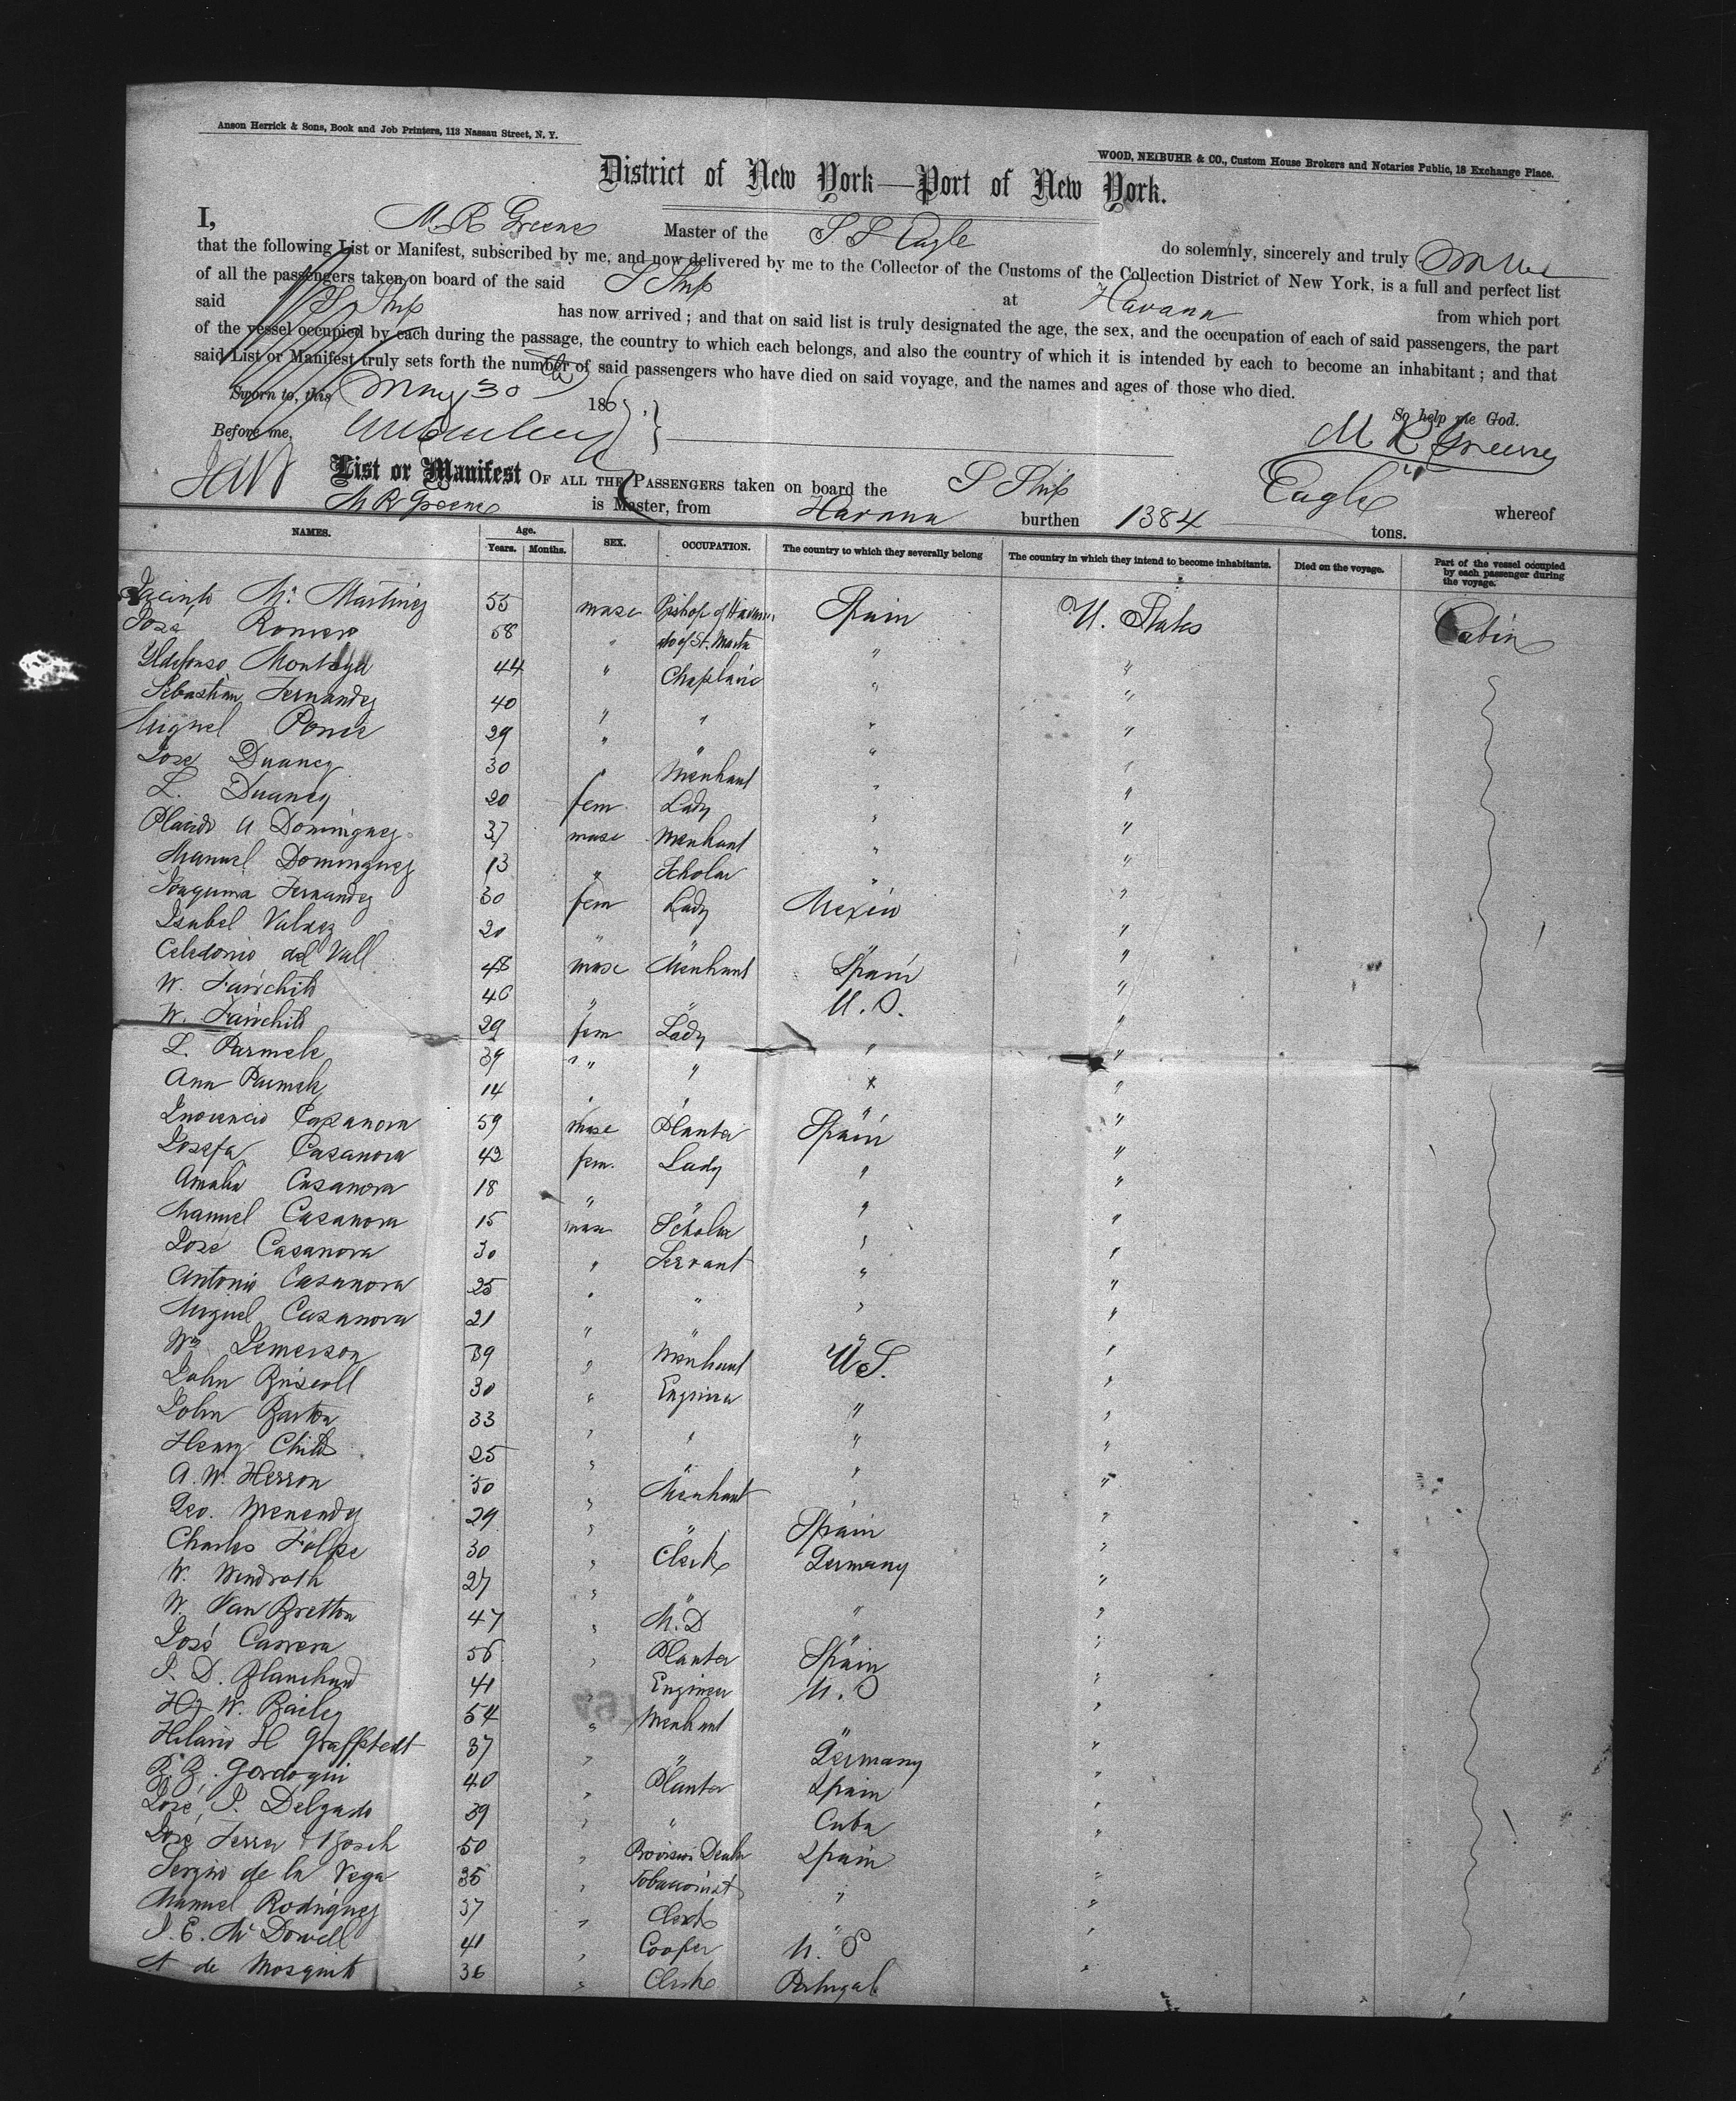 Anson Herrick & Sons, Book and Job Printers, 113 Nassau Street, N. Y.
WOOD, NEIBUHR & CO., Custom House Brokers and Notaries Public, 18 Exchange Place.
District of New York—Port of New York.
I, M R Greene Master of the S S Eagle do solemnly, sincerely and truly
that the following List or Manifest, subscribed by me, and now delivered by me to the Collector of the Customs of the Collection District of New York, is a full and perfect list
of all the passengers taken on board of the said S Ship at Havana from which port
said S Ship has now arrived; and that on said list is truly designated the age, the sex, and the occupation of each of said passengers, the part
of the vessel occupied by each during the passage, the country to which each belongs, and also the country of which it is intended by each to become an inhabitant; and that
said List or Manifest truly sets forth the number of said passengers who have died on said voyage, and the names and ages of those who died.
Sworn to, this May 30 186
So help me God.
Before me,
M R Greene
List or Manifest OF ALL THE PASSENGERS taken on board the S Ship Eagle whereof
M R Greene is Master, from Havana burthen 1384 tons.
NAMES. Age. Years. Months. SEX. OCCUPATION. The country to which they severally belong The country in which they intend to become inhabitants. Died on the voyage. Part of the vessel occupied by each passenger during the voyage.
Jacinto Ma Martinez 55 masc Bishop of Havana Spain U. States Cabin
José Romero 58 " do of St. Marta " "
Yldefonso Montoya 44 " Chaplain " "
Sebastian Fernandez 40 " " " "
Miguel Ponce 29 " " " "
Jose Duaney 30 " Merchant " "
L. Duaney 20 fem Lady " "
Placido A Dominguez 37 masc Merchant " "
Manuel Dominguez 13 " Scholar " "
Joaquina Fernandez 30 fem Lady Mexico "
Isabel Valdez 20 " " " "
Celedonio del Vall 48 masc Merchant Spain "
W. Fairchild 46 " " U. S. "
W. Fairchild 29 fem Lady " "
L. Parmele 39 " " " "
Ann Parmele 14 " " " "
Inocencio Casanova 59 masc Planter Spain "
Josefa Casanova 42 fem. Lady " "
Amalia Casanova 18 " " " "
Manuel Casanova 15 masc Scholar " "
José Casanova 30 " Servant " "
Antonio Casanova 25 " " " "
Miguel Casanova 21 " " " "
Wm Demerson 39 " Merchant U S. "
John Driscoll 30 " Engineer " "
John Barton 33 " " " "
Henry Childs 25 " " " "
A. W. Herron 50 " Merchant " "
Geo. Menendez 29 " " Spain "
Charles Folpe 30 " Clerk Germany "
W. Wendroth 27 " " " "
W. Van Bretton 47 " M. D " "
José Carrera 56 " Planter Spain "
J. D. Blanchard 41 " Engineer U. S "
Hy W. Bailey 54 " Merchant " "
Hilario H Graffstedt 37 " " Germany "
B. B. Gordoqui 40 " Planter Spain "
José J. Delgado 39 " " Cuba "
José Ferrer & Bosch 50 " Provision Dealer Spain "
Sergio de la Vega 35 " Tobacconist " "
Manuel Rodriguez 37 " Clerk " "
J. E. McDowell 41 " Cooper U. S "
A de Mosquito 36 " Clerk Portugal "